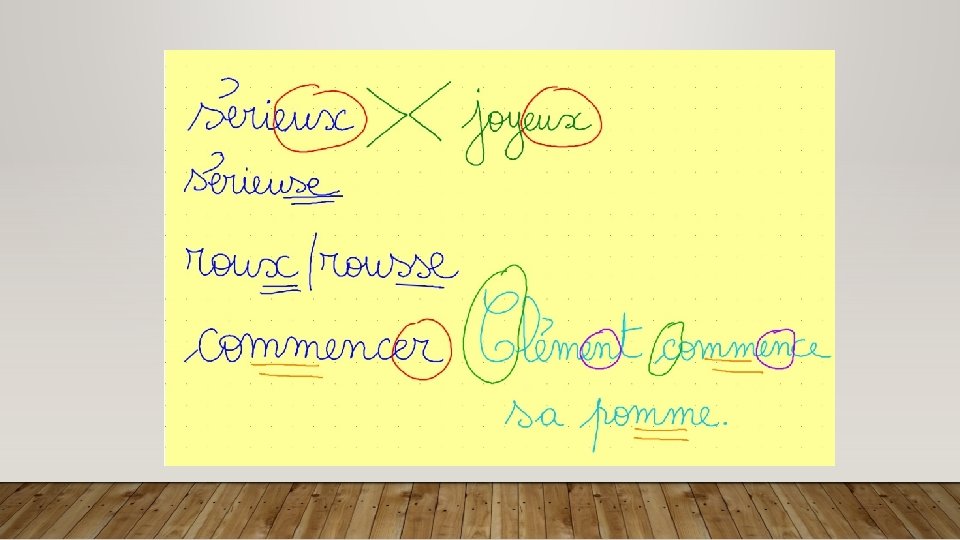 sérieux X joyeux
sérieuse
roux/rousse
commencer Clément commence
sa pomme.